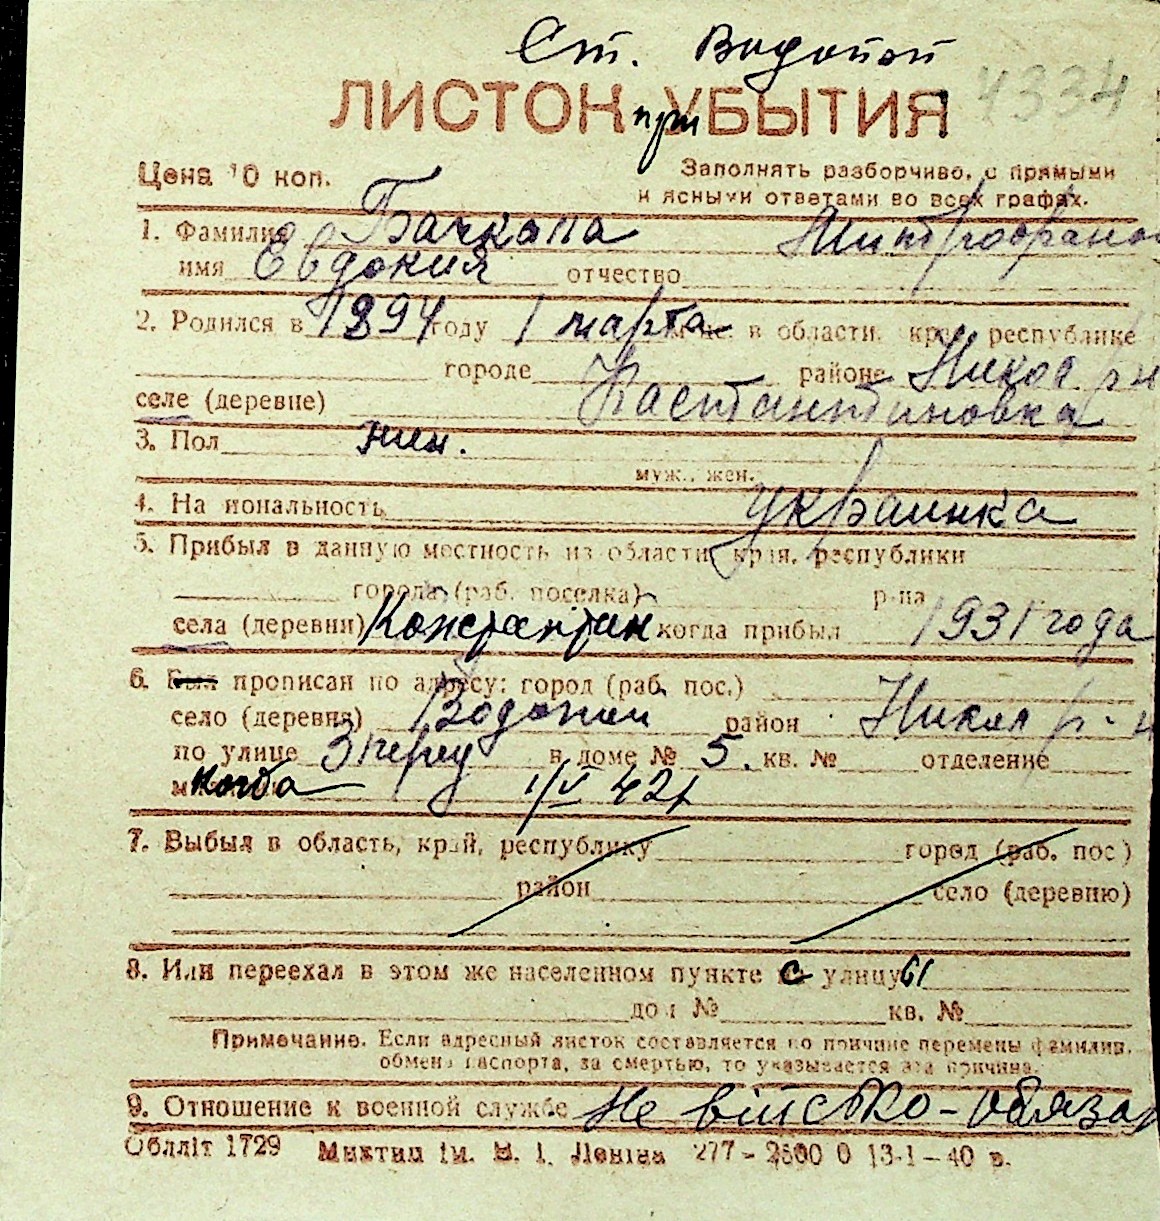 Ст. Водопой
4334
ЛИСТОК при УБЫТИЯ
Цена 10 коп.
Заполнять разборчиво, с прямыми
и ясными ответами во всех графах.
1. Фамилия Бачкала Митрофанов
имя Евдокия отчество
2. Родился в 1894 году 1 марта м-це. в области, крае, республике
городе районе Никол р-н
селе (деревне) Кастантиновка
3. Пол жен.
муж., жен.
4. Национальность украинка
5. Прибыл в данную местность из области, края, республики
города (раб. поселка) р-на
села (деревни) Константин когда прибыл 1931 года
6. Был прописан по адресу: город (раб. пос.)
село (деревня) Водопой район Никол р-н
по улице 3 переу в доме № 5. кв. № отделение
когда 1/V 42
7. Выбыл в область, край, республику город (раб. пос)
район село (деревню)
8. Или переехал в этом же населенном пункте с улицы
дом № кв. №
Примечание. Если адресный листок составляется по причине перемены фамилии,
обмена паспорта, за смертью, то указывается эта причина.
9. Отношение к военной службе Не військо-обяза
Облліт 1729 Миктип ім. В. І. Леніна 277 – 2500 0 13-1 – 40 в.